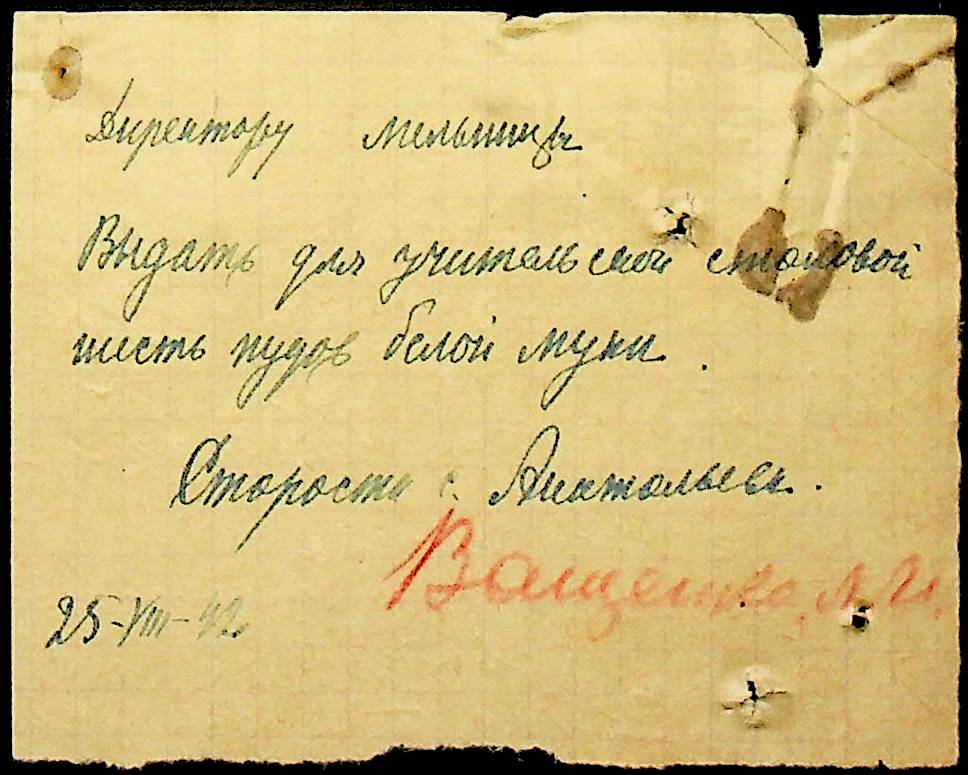 Директору мельницы
Выдать для учительской столовой
шесть пудов белой муки.
Староста с. Анатольевк.
Ващенко. А. И.
25-VIII-42